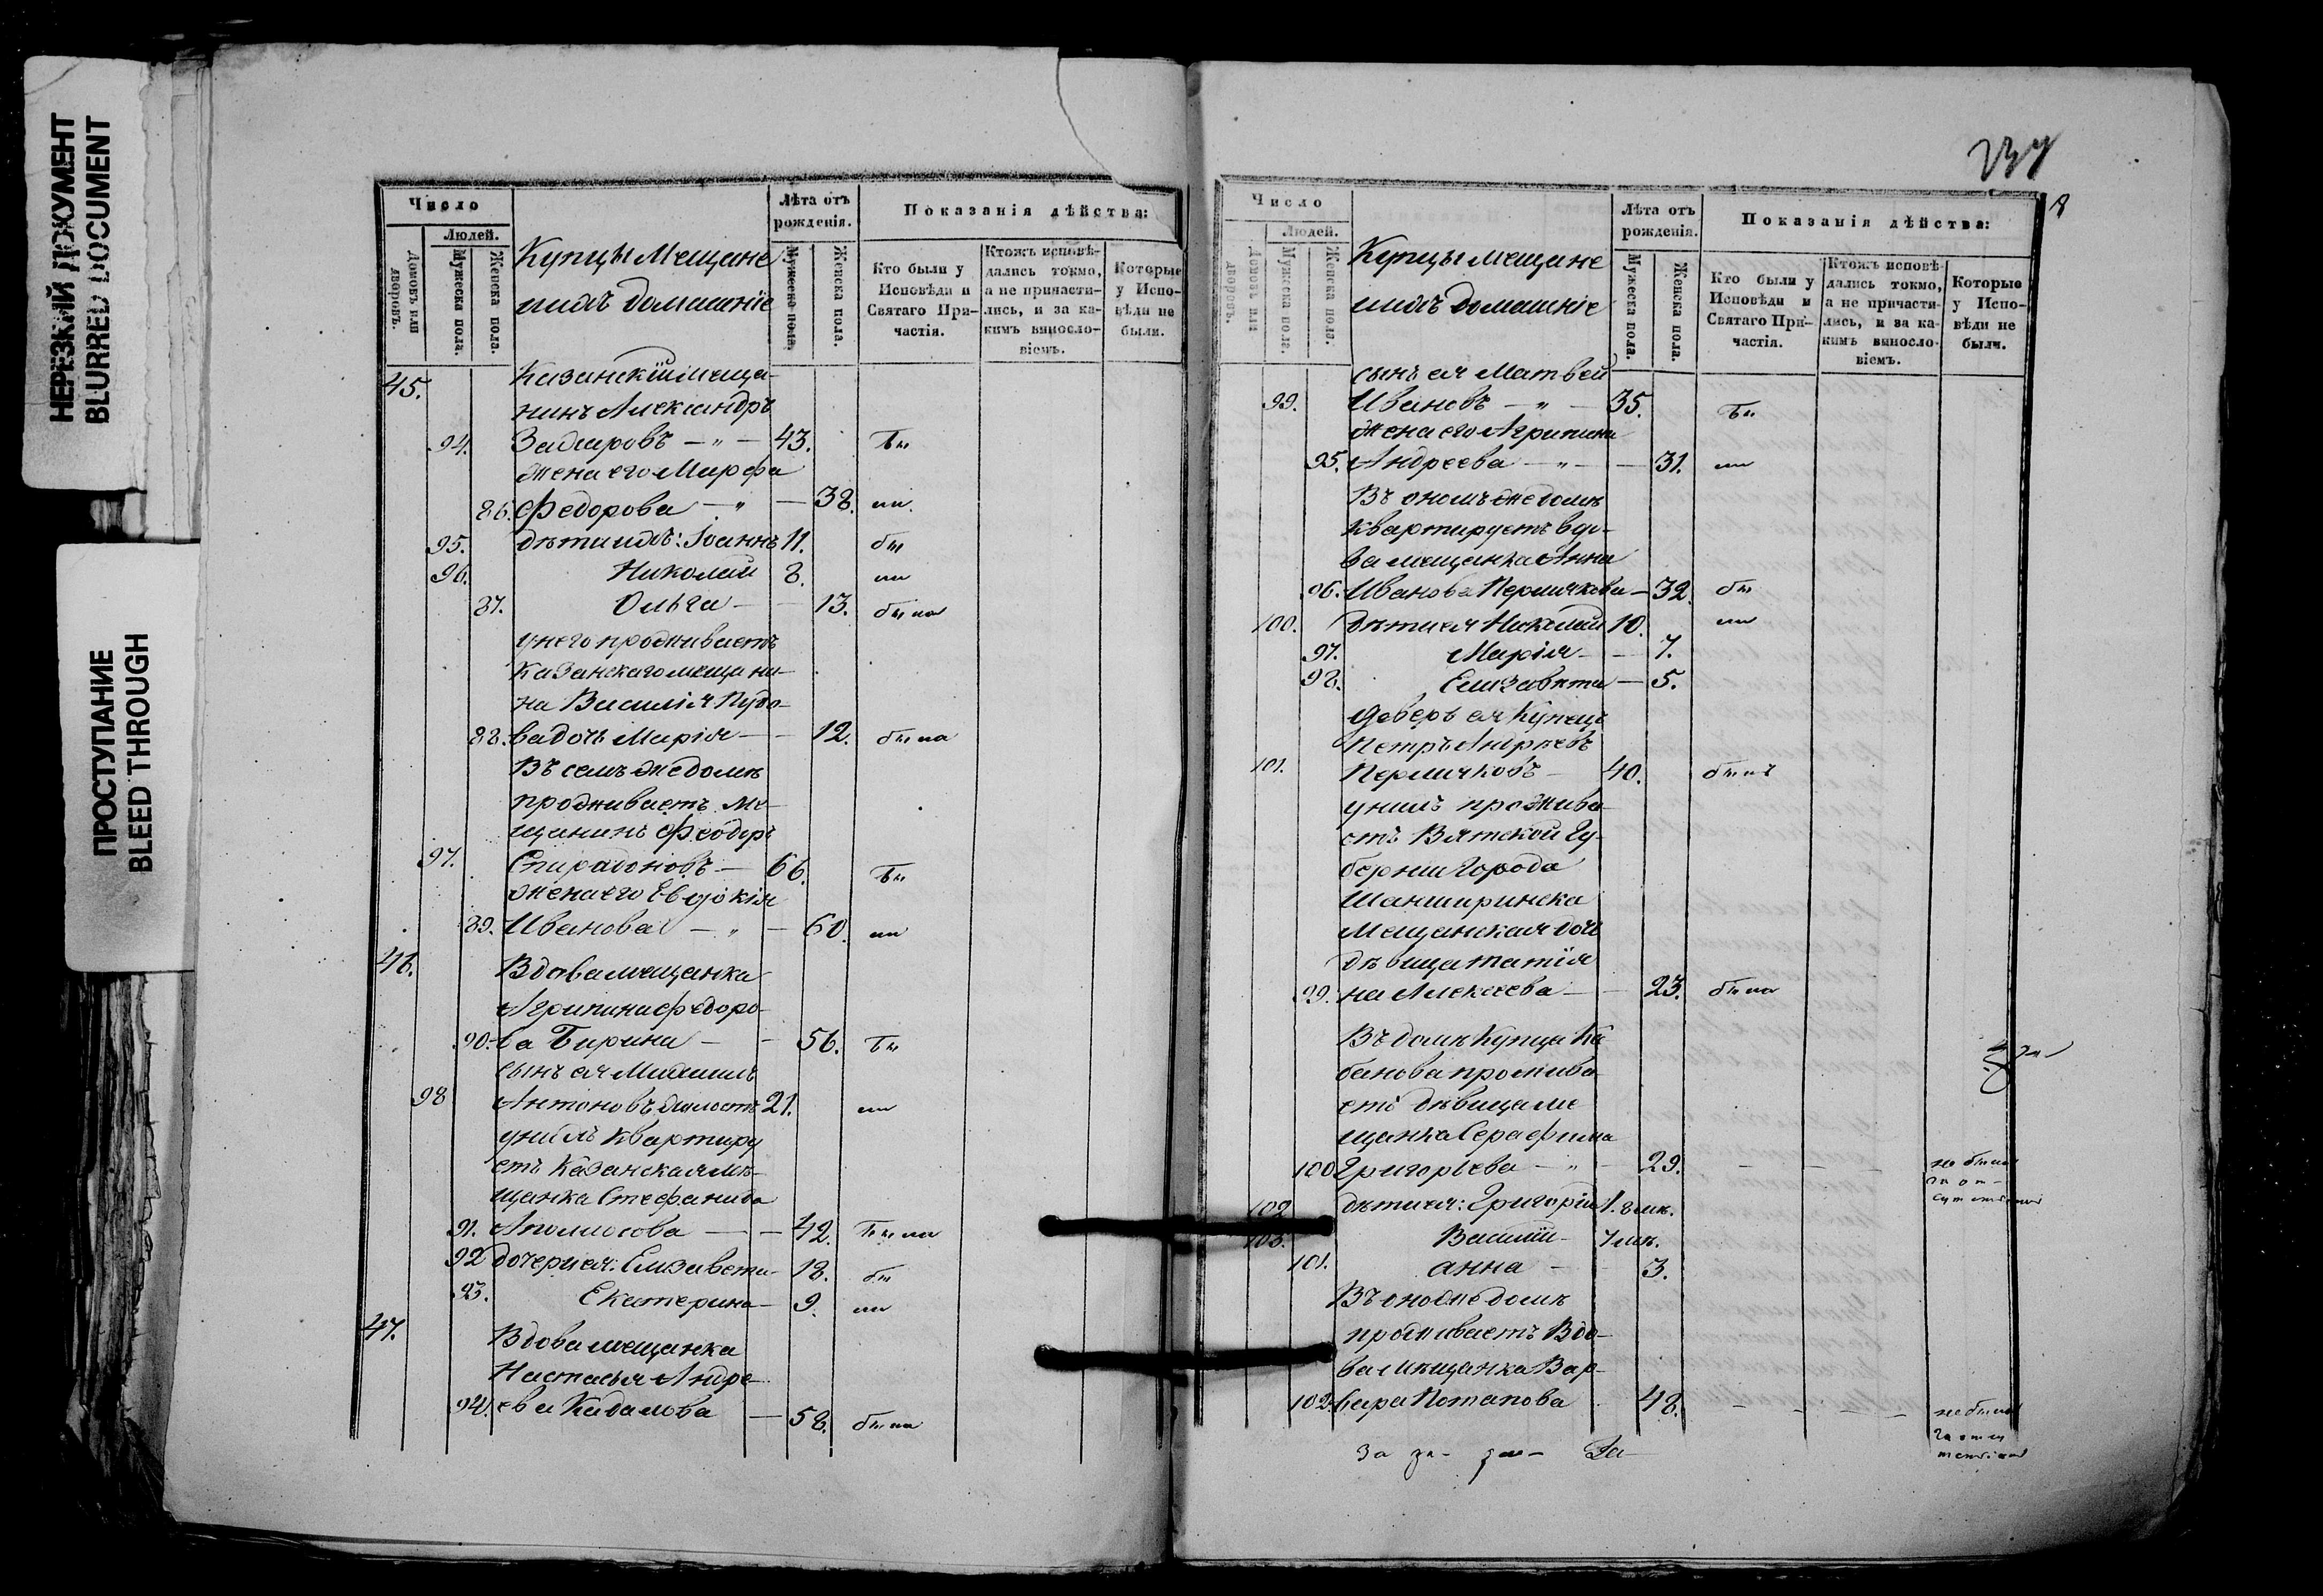 НЕРЕЗКИЙ ДОКУМЕНТ
BLURRED DOCUMENT
ПРОСТУПАНИЕ
BLEED THROUGH
Число
Людей.
Домовъ или дворовъ.
Мужеска пола.
Женска пола.
Купцы Мещане
ихъ домашніе
Лѣта отъ рожденія.
Мужеско пола.
Женска пола.
Показанія дѣйства:
Кто были у Исповѣди и Святаго Причастія.
Ктожъ исповѣдались токмо, а не причастились, и за какимъ винословіемъ.
Которые у Исповѣди не были.
45. Казанскій меща-
нинъ Александръ
94. Задировъ — „ — 43.
жена его Марфа
86. Федорова — „ — 38.
95. дѣти ихъ: Іоаннъ 11.
96. Николай 8.
87. Ольга — 13. была
у него проживаетъ
Казанскаго мещани-
на Василія Пудо-
88. ва дочь Марія — 12. была
Въ семъ же домѣ
проживаетъ ме-
щанинъ Феодоръ
97. Спиридоновъ — 66.
жена его Евдокія
89. Иванова — „ — 60.
46. Вдова мещанка
Агрипина Федоро-
90. ва Бирина — 56.
сынъ ея Михаилъ
98 Антоновъ холостъ 21.
у нихъ квартиру
етъ Казанская мѣ-
щанка Стефанида
91. Аполлосова — 42. была
92 дочери ея: Елизавета 18.
93. Екатерина — 9.
47. Вдова мещанка
Настасья Андре
94. ева Кидалова — 58. была
237
8
Число
Людей.
Домовъ или дворовъ.
Мужеска пола.
Женска пола.
Купцы мещане
ихъ домашніе
Лѣта отъ рожденія.
Мужеска пола.
Женска пола.
Показанія дѣйства:
Кто были у Исповѣди и Святаго Причастія.
Ктожъ исповѣдались токмо, а не причастились, и за какимъ винословіемъ.
Которые у Исповѣди не были.
сынъ ея Матвей
99. Ивановъ — „ — 35.
жена его Агрипина
95. Андреева — „ — 31.
Въ ономъ же домѣ
квартируетъ вдо-
ва мещанка Анна
96. Иванова Пермякова — 32.
100. дѣти ея Николай 10.
97. Марія — 7.
98. Елизавѣта — 5.
деверь ея Купецъ
Петръ Андрѣевъ
101. Пермяковъ — 40. былъ
у нихъ прожива
етъ Вятской Гу-
берніи города
Мещанская дочь
дѣвица Татія
99. на Алексеева — 23. была
Въ домѣ Купца Ка
банова прожива
етъ дѣвица ме
щанка Серафима
100 Григорьева — „ — 29. — — — не была
102 дѣти ея: Григорій 1.
103. Василій —
101. анна — 3.
Въ оно же домѣ
проживаетъ Вдо-
ва мѣщанка Вар-
102. вара Потапова 48. — — — не была